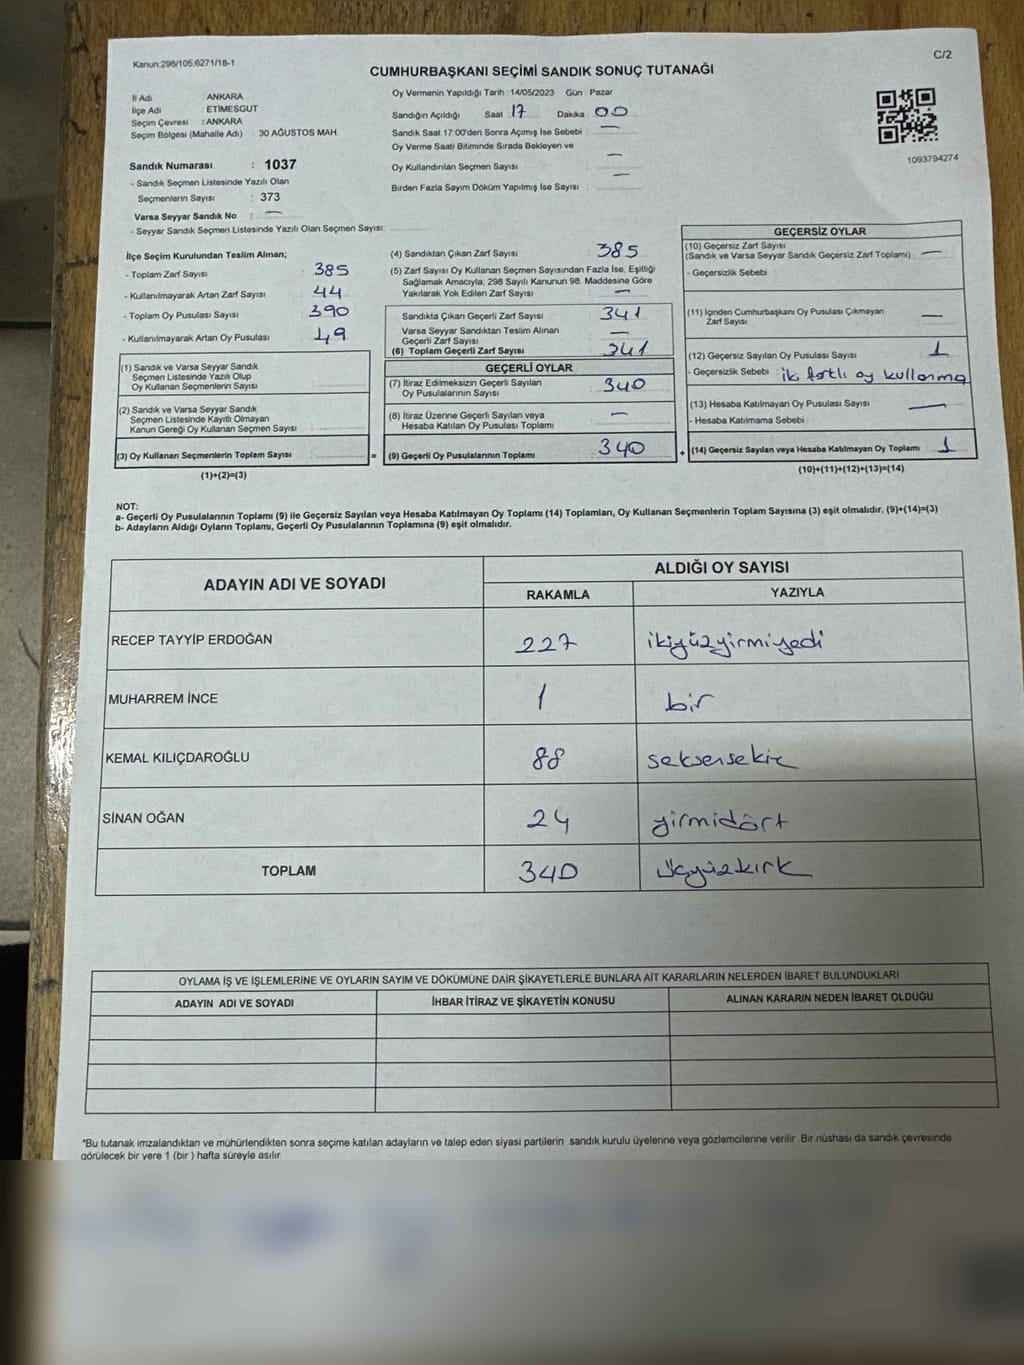 Kanun:298/105;6271/18-1
C/2
CUMHURBAŞKANI SEÇİMİ SANDIK SONUÇ TUTANAĞI
İl Adı ANKARA
İlçe Adı : ETİMESGUT
Seçim Çevresi : ANKARA
Seçim Bölgesi (Mahalle Adı) : 30 AĞUSTOS MAH.
Sandık Numarası : 1037
- Sandık Seçmen Listesinde Yazılı Olan
Seçmenlerin Sayısı : 373
Varsa Seyyar Sandık No : —
- Seyyar Sandık Seçmen Listesinde Yazılı Olan Seçmen Sayısı:
Oy Vermenin Yapıldığı Tarih : 14/05/2023 Gün : Pazar
Sandığın Açıldığı Saat : 17 Dakika : 00
Sandık Saat 17:00'den Sonra Açımış İse Sebebi : —
Oy Verme Saati Bitiminde Sırada Bekleyen ve
Oy Kullandırılan Seçmen Sayısı : —
Birden Fazla Sayım Döküm Yapılmış İse Sayısı : —
1093794274
İlçe Seçim Kurulundan Teslim Alınan;
- Toplam Zarf Sayısı : 385
- Kullanılmayarak Artan Zarf Sayısı : 44
- Toplam Oy Pusulası Sayısı : 390
- Kullanılmayarak Artan Oy Pusulası : 49
(1) Sandık ve Varsa Seyyar Sandık
Seçmen Listesinde Yazılı Olup
Oy Kullanan Seçmenlerin Sayısı :
(2) Sandık ve Varsa Seyyar Sandık
Seçmen Listesinde Kayıtlı Olmayan
Kanun Gereği Oy Kullanan Seçmen Sayısı :
(3) Oy Kullanan Seçmenlerin Toplam Sayısı : =
(1)+(2)=(3)
(4) Sandıktan Çıkan Zarf Sayısı : 385
(5) Zarf Sayısı Oy Kullanan Seçmen Sayısından Fazla İse, Eşitliği
Sağlamak Amacıyla; 298 Sayılı Kanunun 98. Maddesine Göre
Yakılarak Yok Edilen Zarf Sayısı : —
Sandıkta Çıkan Geçerli Zarf Sayısı : 341
Varsa Seyyar Sandıktan Teslim Alınan
Geçerli Zarf Sayısı : —
(6) Toplam Geçerli Zarf Sayısı : 341
GEÇERLİ OYLAR
(7) İtiraz Edilmeksizin Geçerli Sayılan
Oy Pusulalarının Sayısı : 340
(8) İtiraz Üzerine Geçerli Sayılan veya
Hesaba Katılan Oy Pusulası Toplamı : —
(9) Geçerli Oy Pusulalarının Toplamı : 340 +
GEÇERSİZ OYLAR
(10) Geçersiz Zarf Sayısı
(Sandık ve Varsa Seyyar Sandık Geçersiz Zarf Toplamı) : —
- Geçersizlik Sebebi :
(11) İçinden Cumhurbaşkanı Oy Pusulası Çıkmayan
Zarf Sayısı : —
(12) Geçersiz Sayılan Oy Pusulası Sayısı : 1
- Geçersizlik Sebebi : iki farklı oy kullanma
(13) Hesaba Katılmayan Oy Pusulası Sayısı : —
- Hesaba Katılmama Sebebi :
(14) Geçersiz Sayılan veya Hesaba Katılmayan Oy Toplamı : 1
(10)+(11)+(12)+(13)=(14)
NOT:
a- Geçerli Oy Pusulalarının Toplamı (9) ile Geçersiz Sayılan veya Hesaba Katılmayan Oy Toplamı (14) Toplamları, Oy Kullanan Seçmenlerin Toplam Sayısına (3) eşit olmalıdır. (9)+(14)=(3)
b- Adayların Aldığı Oyların Toplamı, Geçerli Oy Pusulalarının Toplamına (9) eşit olmalıdır.
ADAYIN ADI VE SOYADI ALDIĞI OY SAYISI
RAKAMLA YAZIYLA
RECEP TAYYİP ERDOĞAN 227 ikiyüzyirmiyedi
MUHARREM İNCE 1 bir
KEMAL KILIÇDAROĞLU 88 seksensekiz
SİNAN OĞAN 24 yirmidört
TOPLAM 340 üçyüzkırk
OYLAMA İŞ VE İŞLEMLERİNE VE OYLARIN SAYIM VE DÖKÜMÜNE DAİR ŞİKAYETLERLE BUNLARA AİT KARARLARIN NELERDEN İBARET BULUNDUKLARI
ADAYIN ADI VE SOYADI İHBAR İTİRAZ VE ŞİKAYETİN KONUSU ALINAN KARARIN NEDEN İBARET OLDUĞU
*Bu tutanak imzalandıktan ve mühürlendikten sonra seçime katılan adayların ve talep eden siyasi partilerin sandık kurulu üyelerine veya gözlemcilerine verilir .Bir nüshası da sandık çevresinde
görülecek bir yere 1 (bir ) hafta süreyle asılır